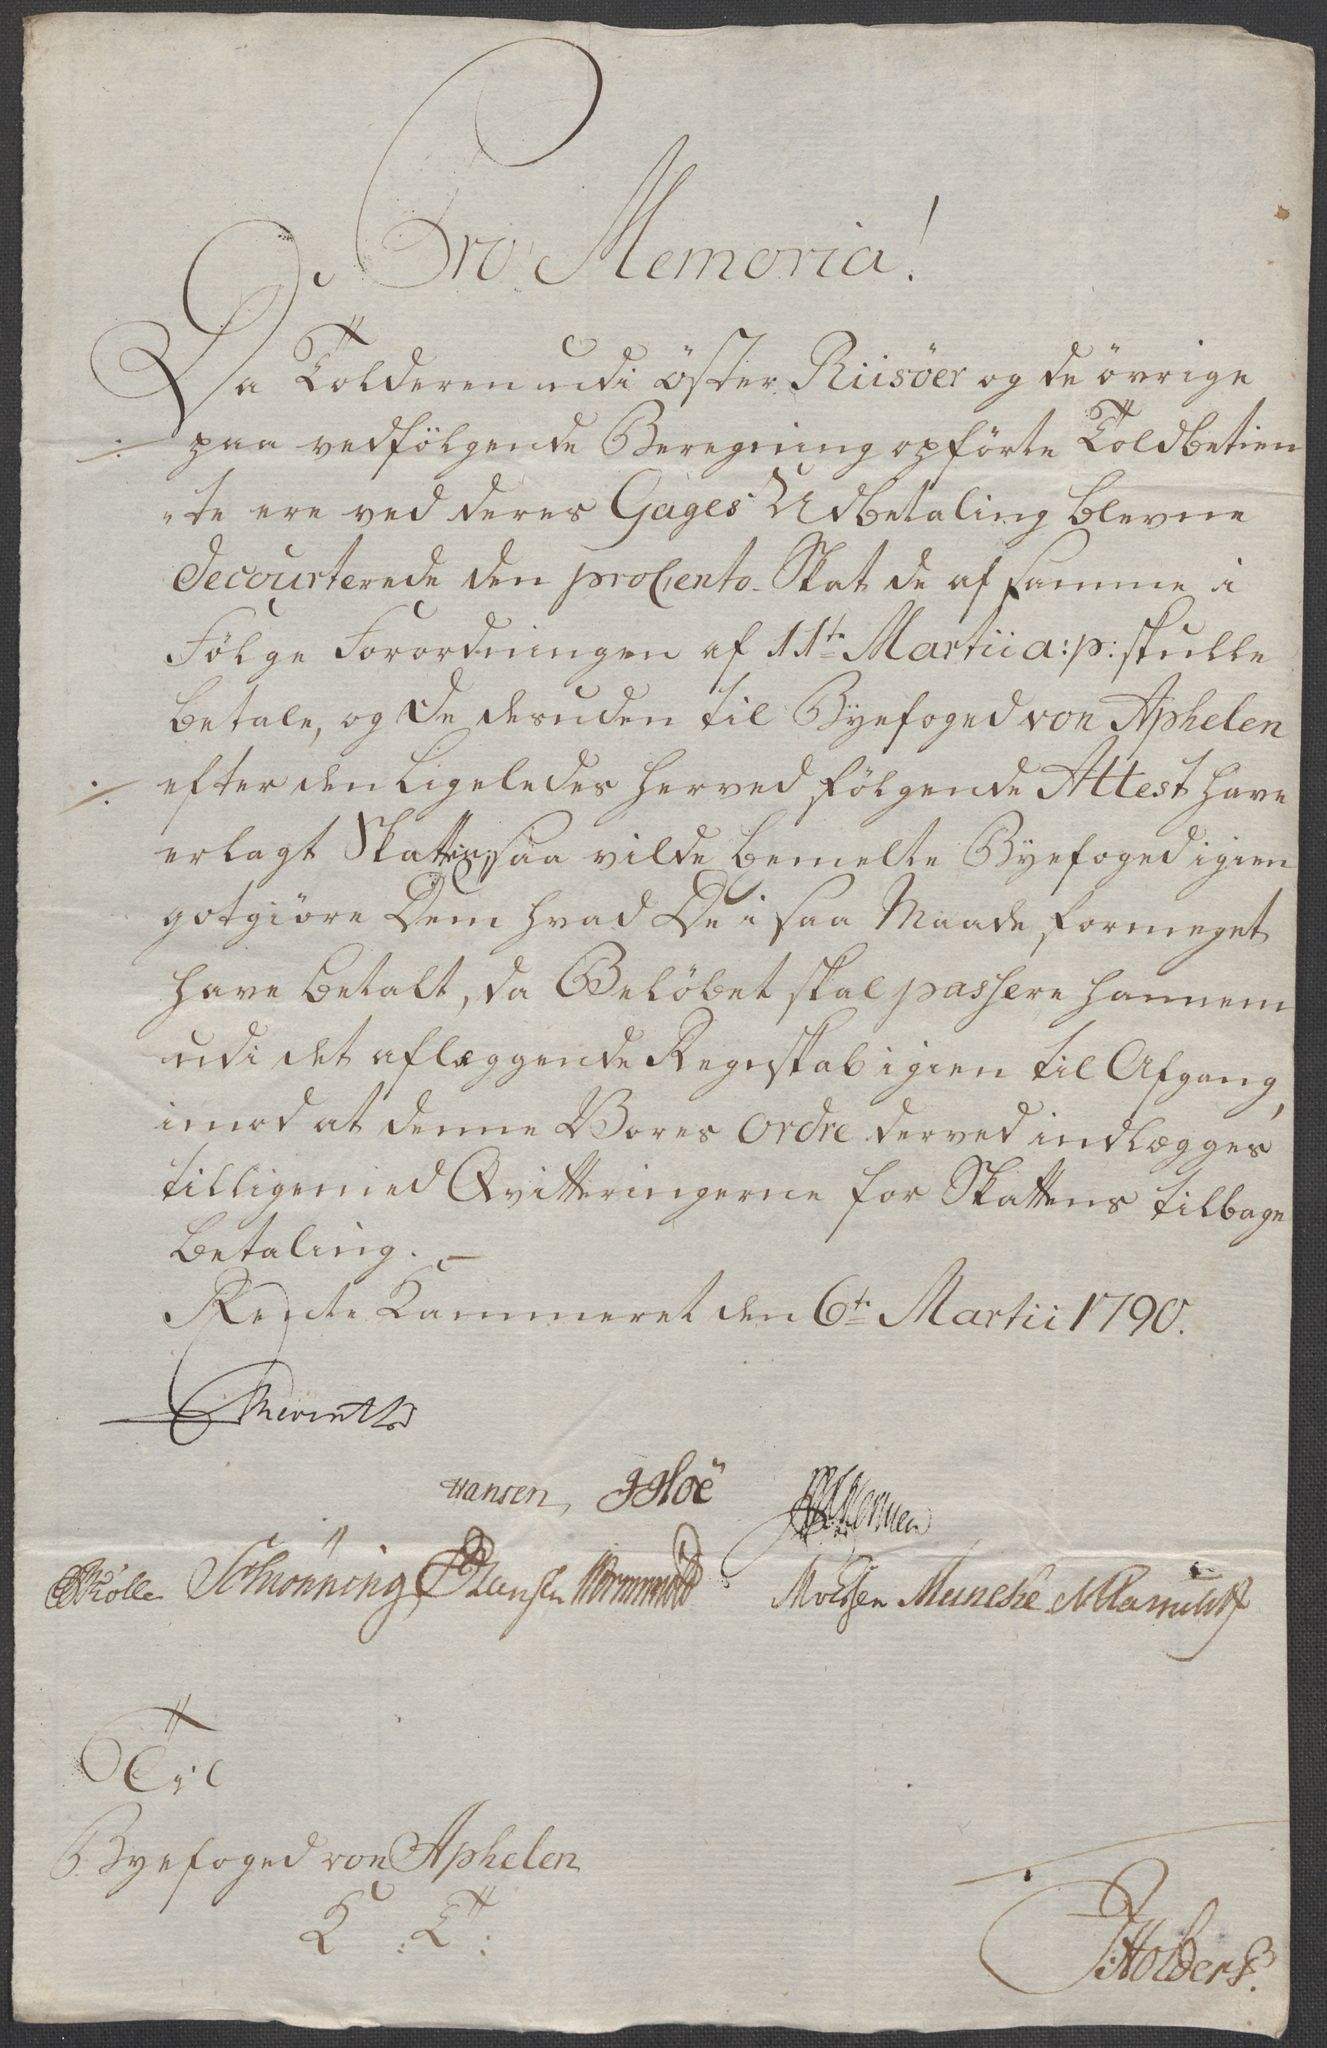 Pro Memoria!
Da Tolderen udi Öster Riisöer og de övrige
paa vedfölgende Beregning opförte Toldbetien
„te ere ved deres Gages Udbetaling blevne
decourterede den proCento Skat de af samme i
Fölge Forordningen af 11te Martii a: p: skulle
betale, og de desuden til Byefoged von Aphelen
efter den ligeledes herved fölgende Attest have
erlagt Skatten, saa vilde bemelte Byefoged igien
gotgiöre Dem hvad De i saa Maade formeget
have betalt, da Belöbet skal passere hannem
udi det aflæggende Regnskab igien til Afgang,
imod at denne Vores Ordre derved indlægges
tilligemed Qvitteringerne for Skattens tilbage
betaling. –
Rente Kammeret den 6te Martii 1790.
Hansen, Hoë
Schiönning Hansen Wormskiold Moldsen
Til
Byefoged von Aphelen
K. T:
Holbers.